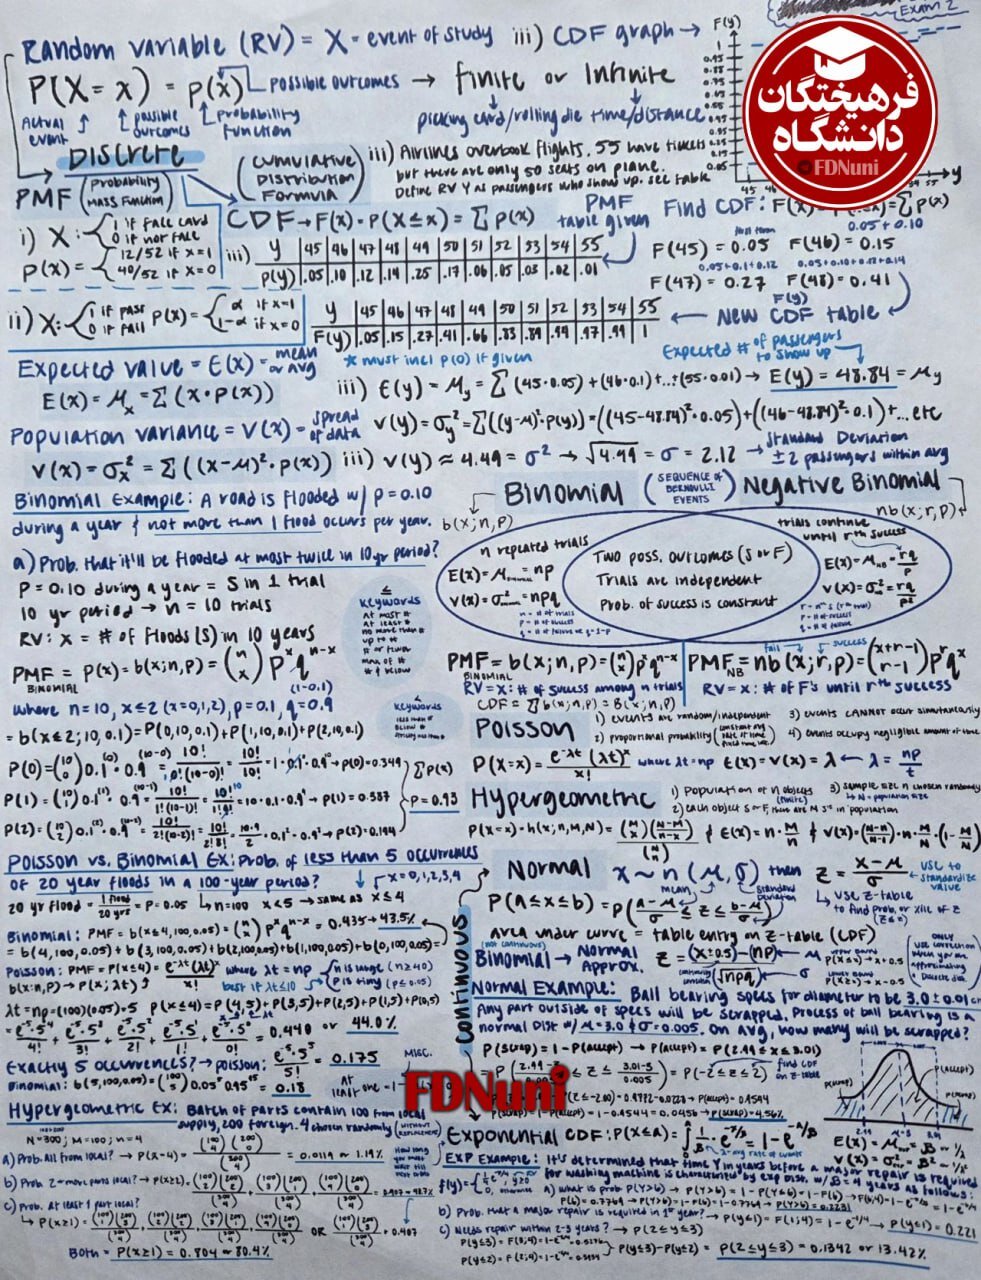 Exam 2
Random variable (RV) = X = event of study
iii) CDF graph → F(y)
P(X = x) = p(x) possible outcomes → finite or infinite
Actual event possible outcomes probability function
picking card/rolling die time/distance
فرهیختگان
دانشگاه
©FDNuni
45 46 47 48 54 55 y
Discrete
PMF (Probability Mass Function)
(Cumulative Distribution Formula)
iii) Airlines overbook flights. 55 have tickets
but there are only 50 seats on plane.
Define RV Y as passengers who show up. see table
CDF → F(x) = P(X ≤ x) = Σ p(x)
PMF table given
Find CDF: F(x) = P(X ≤ x) = Σ p(x)
i) X: 1 if face card
0 if not face
p(x) = 12/52 if x=1
40/52 if x=0
iii) y 45 46 47 48 49 50 51 52 53 54 55
p(y) .05 .10 .12 .14 .25 .17 .06 .05 .03 .02 .01
F(45) = 0.05 F(46) = 0.15
0.05+0.10
0.05+0.1+0.12 0.05+0.10+0.12+0.14
F(47) = 0.27 F(48) = 0.41
ii) X: 1 if pass
0 if fail
p(x) = α if x=1
1-α if x=0
y 45 46 47 48 49 50 51 52 53 54 55
F(y) .05 .15 .27 .41 .66 .83 .89 .94 .97 .99 1
← New CDF table F(y)
* must incl p(0) if given
Expected value = E(x) = mean or avg
E(x) = μx = Σ (x · p(x))
Expected # of passengers to show up
iii) E(y) = μy = Σ (45·0.05) + (46·0.1) +...+ (55·0.01) → E(y) = 48.84 = μy
Population variance = V(x) = spread of data
V(y) = σ²y = Σ((y-μ)²·p(y)) = ((45-48.84)²·0.05) + ((46-48.84)²·0.1) +... etc
V(x) = σ²x = Σ ((x-μ)²·p(x))
iii) V(y) ≈ 4.49 = σ² → √4.49 = σ = 2.12 → standard Deviation
±2 passengers within avg
Binomial Example: A road is flooded w/ p = 0.10
during a year & not more than 1 flood occurs per year.
a) Prob. that it'll be flooded at most twice in 10 yr period?
P = 0.10 during a year = S in 1 trial
10 yr period → n = 10 trials
RV: x = # of floods (S) in 10 years
PMF = p(x) = b(x;n,p) = (n x) p^x q^(n-x)
BINOMIAL
(1-0.1)
where n=10, x≤2 (x=0,1,2), p=0.1, q=0.9
= b(x≤2; 10, 0.1) = P(0,10,0.1) + P(1,10,0.1) + P(2,10,0.1)
≤
Keywords
at most #
at least #
no more than #
up to #
# or fewer
max of #
# & below
Keywords
less than #
below #
Binomial (SEQUENCE OF BERNOULLI EVENTS) Negative Binomial
b(x;n,p) nb(x;r,p)
n repeated trials
E(x) = μ = np
V(x) = σ² = npq
n = # of trials
p = # of success
q = # of failure or q = 1-p
Two poss. outcomes (S or F)
Trials are independent
Prob. of success is constant
trials continue until rth success
E(x) = μ = rq/p
V(x) = σ² = rq/p²
PMF = b(x;n,p) = (n x) p^x q^(n-x)
BINOMIAL
RV = x: # of success among n trials
CDF = Σ b(x;n,p) = B(x;n,p)
PMF = nb(x;r,p) = (x+r-1 r-1) p^r q^x
NB fail success
RV = x: # of F's until rth success
P(0) = (10 0) 0.1^(0) · 0.9^(10-0) = 10!/0!(10-0)! = 10!/10! = 1·0.1⁰·0.9¹⁰ → P(0) = 0.349
P(1) = (10 1) 0.1^(1) · 0.9^(10-1) = 10!/1!(10-1)! = 10!/1!9! = 10·0.1·0.9⁹ → P(1) = 0.387
P(2) = (10 2) 0.1^(2) · 0.9^(10-2) = 10!/2!(10-2)! = 10!/2!8! = 10·9/2 · 0.1²·0.9⁸ → P(2) = 0.194
Σ p(x)
P = 0.93
Poisson
1) events are random/independent
2) proportional probability
3) events CANNOT occur simultaneously
4) events occupy negligible amount of time
P(X = x) = e^(-λt) (λt)^x / x! where λt = np E(x) = V(x) = λ ← λ = np/t
Hypergeometric
1) Population of N objects (finite)
2) each object S or F, there are M S's in population
3) sample size n chosen randomly
N = population size
P(X = x) = h(x;n,M,N) = (M x)(N-M n-x)/(N n) & E(x) = n·M/N & V(x) = (N-n/N-1)·n·M/N·(1-M/N)
Poisson vs. Binomial EX: Prob. of less than 5 occurrences
of 20 year floods in a 100-year period? x = 0,1,2,3,4
20 yr flood = 1 flood/20 yrs = P = 0.05 n=100 x<5 → same as x≤4
Binomial: PMF = b(x≤4, 100, 0.05) = (n x) p^x q^(n-x) = 0.435 → 43.5%
= b(4,100,0.05) + b(3,100,0.05) + b(2,100,0.05) + b(1,100,0.05) + b(0,100,0.05)
Poisson: PMF = P(x≤4) = e^(-λt) (λt)^x / x! where λt = np
b(x;n,p) → P(x; λt) best if λt≤10
n is large (n≥40)
p is tiny (p≤0.05)
λt = np = (100)(0.05) = 5 P(x≤4) = P(4,5) + P(3,5) + P(2,5) + P(1,5) + P(0,5)
= e⁻⁵·5⁴/4! + e⁻⁵·5³/3! + e⁻⁵·5²/2! + e⁻⁵·5¹/1! + e⁻⁵·5⁰/0! = 0.440 or 44.0%
Exactly 5 occurrences? → poisson: e⁻⁵·5⁵/5! = 0.175
Binomial: b(5,100,0.05) = (100 5) 0.05⁵ 0.95⁹⁵ = 0.18
MISC.
At least one = 1 -
continuous
Normal X ~ n (μ, σ) then z = x-μ/σ use to standardize value
mean standard deviation
P(a≤x≤b) = P(a-μ/σ ≤ z ≤ b-μ/σ)
use z-table to find prob. or %ile of z
Area under curve = table entry on z-table (CDF)
(not continuous)
Binomial → Normal Approx. z = (x±0.5)-np/√npq
P(X≤x) → x+0.5
P(X≥x) → x-0.5
ONLY use correction when you are approximating a discrete dist.
Normal Example: Ball bearing specs for diameter to be 3.0±0.01 cm
Any part outside of specs will be scrapped. Process of ball bearing is a
normal dist w/ μ=3.0 & σ=0.005. On avg, how many will be scrapped?
P(scrap) = 1 - P(accept) → P(accept) = P(2.99 ≤ x ≤ 3.01)
= P(2.99-3/0.005 ≤ z ≤ 3.01-3/0.005) = P(-2≤z≤2) find CDF on z-table
0.9772-0.0228 → P(accept) = 0.9544
P(scrap) = 1 - P(accept) = 1-0.9544 = 0.0456 → P(scrap) = 4.56%
P(scrap) P(accept) P(scrap)
2.99 3.01
FDNuni
Hypergeometric EX: Batch of parts contain 100 from local
supply, 200 foreign. 4 chosen randomly (WITHOUT REPLACEMENT)
N=300; M=100; n=4
a) Prob. all from local? → P(x=4) = (100 4)(200 0)/(300 4) = 0.0119 or 1.19%
b) Prob 2 or more parts local? → P(x≥2) = (100 2)(200 2)/(300 4) + (100 3)(200 1)/(300 4) + (100 4)(200 0)/(300 4) = 0.407 = 40.7%
c) Prob. at least 1 part local?
→ P(x≥1) = (100 1)(200 3)/(300 4) + (100 2)(200 2)/(300 4) + (100 3)(200 1)/(300 4) + (100 4)(200 0)/(300 4) OR (100 1)(200 3)/(300 4) + 0.407
Both = P(x≥1) = 0.804 or 80.4%
How long you must wait till next prob
Exponential CDF: P(X≤a) = ∫ 1/B · e^(-x/B) = 1 - e^(-a/B)
E(x) = μ = B or 1/λ
V(x) = σ² = B² or 1/λ²
EXP Example: It's determined that time Y in years before a major repair is required
for washing machine is characterized by exp dist. w/ B = 4 years as follows:
f(y) = { 1/4 e^(-y/4), y≥0
0, otherwise
a) what is prob P(Y>6) → P(y>6) = 1 - P(y≤6) = 1 - F(6) → F(6;4) = 1-e^(-6/4)
P(6) = 0.7769 → P(y>6) = 1-0.7769 → P(y>6) = 0.2231
b) Prob. that a major repair is required in 1st year? → P(y≤1) = F(1;4) = 1-e^(-1/4) → P(y≤1) = 0.221
c) Needs repair within 2-3 years? → P(2≤y≤3)
P(y≤3) = F(3;4) = 1-e^(-3/4) = 0.5276
P(y≤2) = F(2;4) = 1-e^(-2/4) = 0.3934
P(y≤3)-P(y≤2) = P(2≤y≤3) = 0.1342 or 13.42%